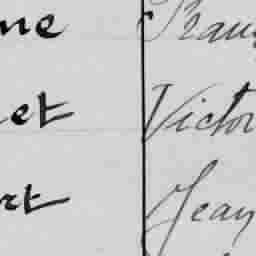 ne Fran
et Victor
rt Jean